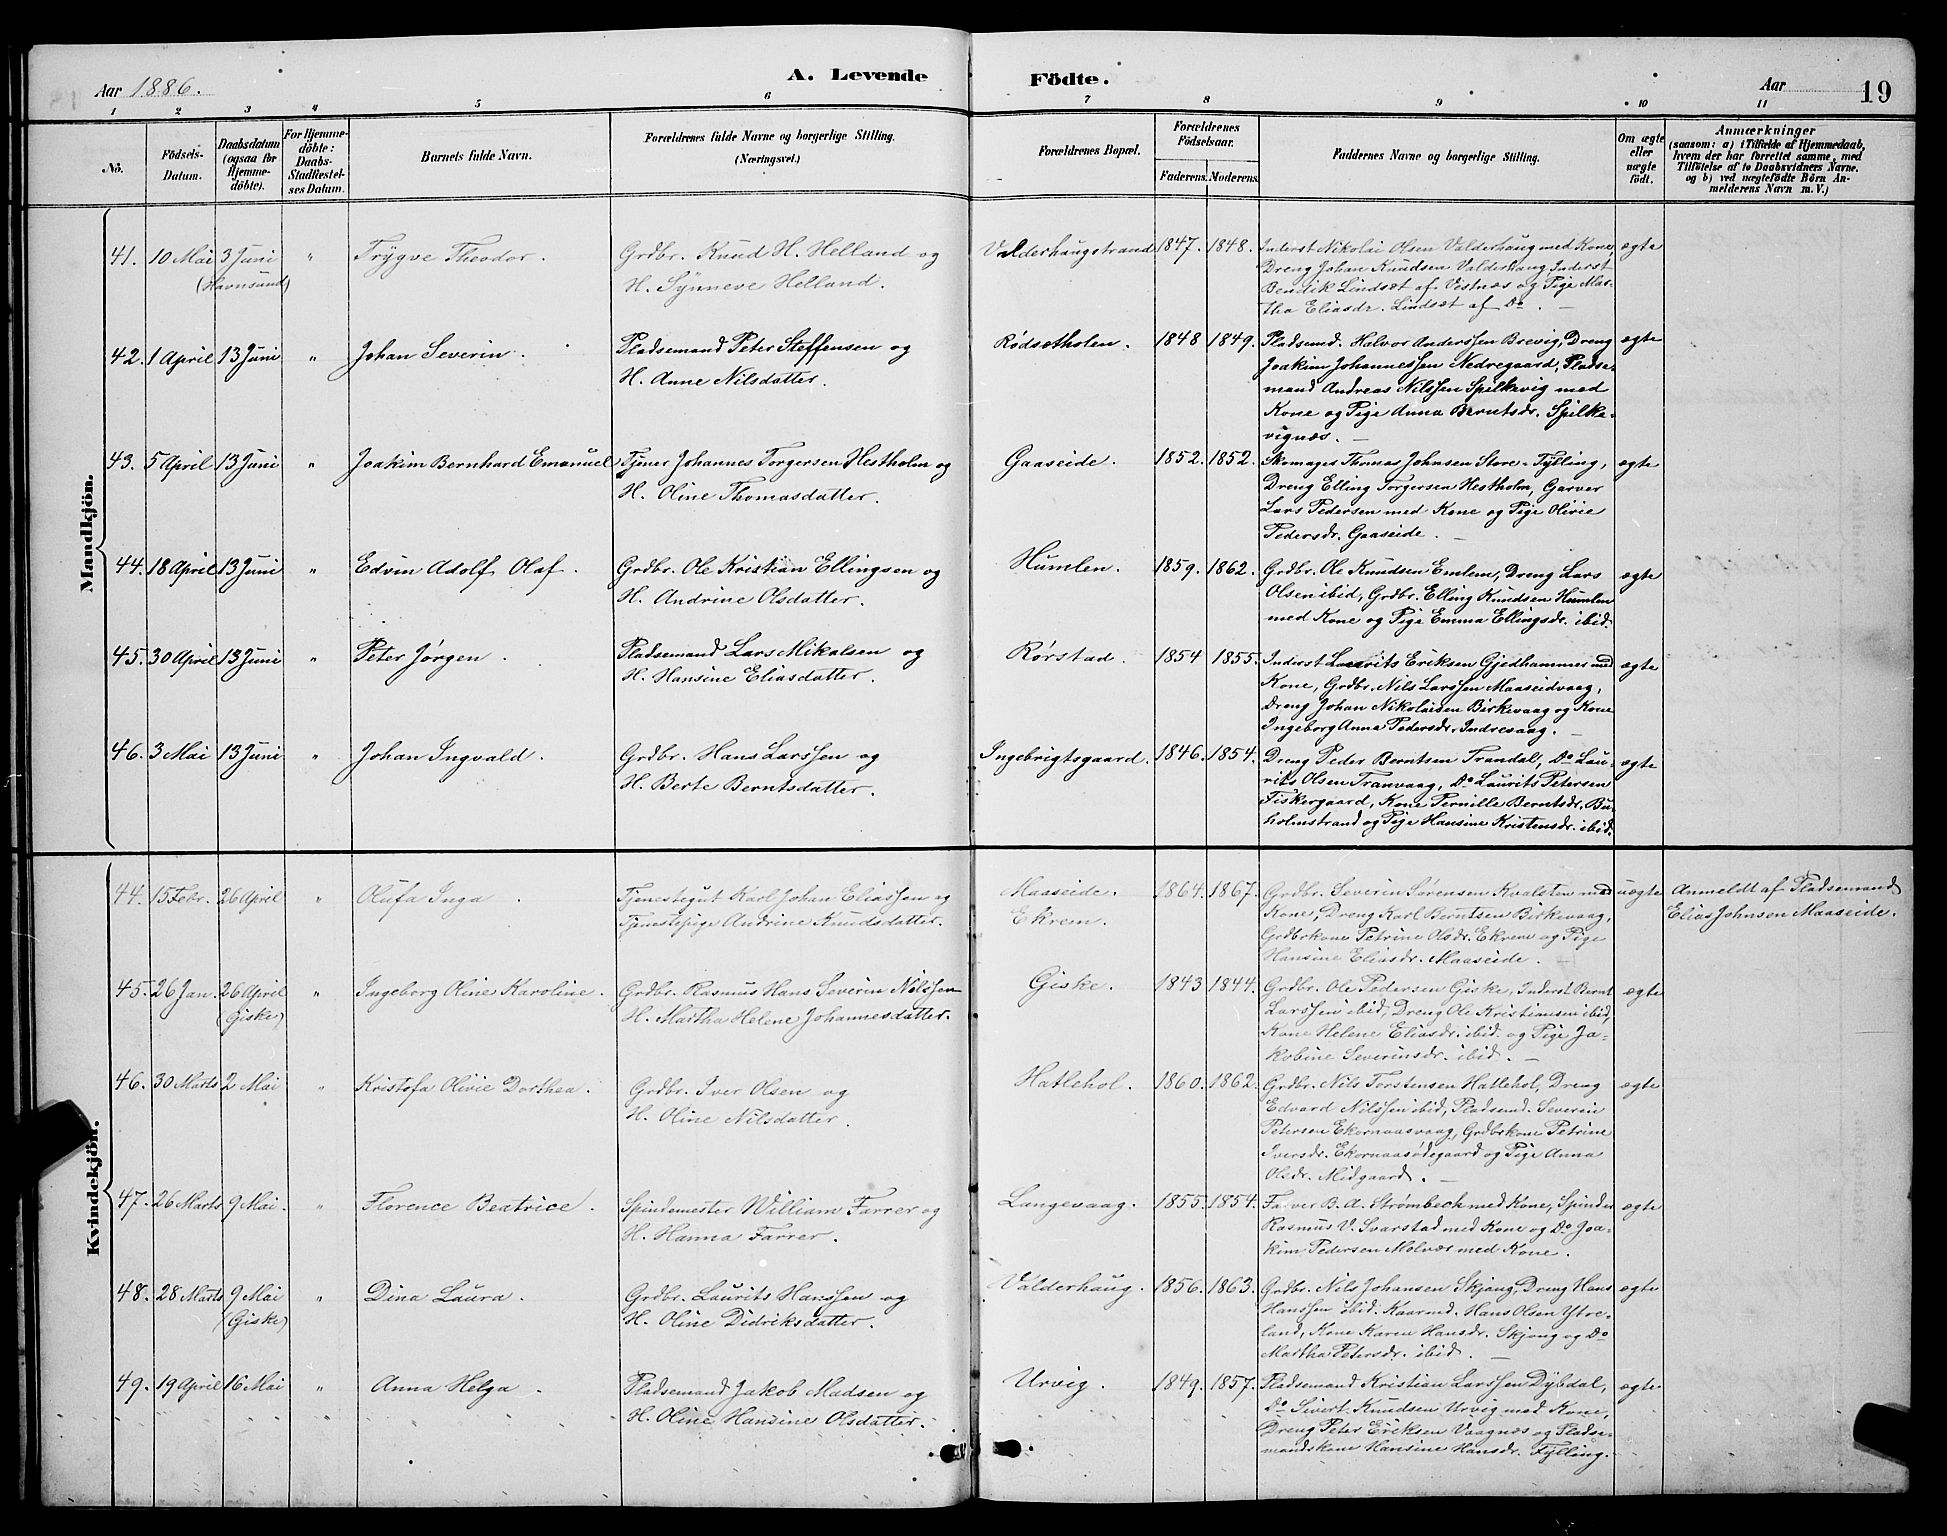 Aar 1886.
A. Levende Födte.
Aar 19
1 2 3 4 5 6 7 8 9 10 11
No.
Födsels-
Datum.
Daabsdatum
(ogsaa for
Hjemme-
döbte).
For Hjemme-
döbte:
Daabs-
Stadfæstel-
ses Datum.
Barnets fulde Navn.
Forældrenes fulde Navne og borgerlige Stilling.
(Næringsvei.)
Forældrenes Bopæl.
Forældrenes
Födselsaar.
Faderens. Moderens.
Faddernes Navne og borgerlige Stilling.
Om ægte
eller
uægte
födt.
Anmærkninger
(saasom: a) i Tilfælde af Hjemmedaab,
hvem der har forrettet samme, med
Tilföielse af to Daabsvidners Navne.
og b) ved uægtefödte Börn An-
melderens Navn m. V.)
Mandkjön.
41. 10 Mai 3 Juni " Trygve Theodor. Grdbr. Knud H. Helland og Valderhaugstrand 1847. 1848. Inderst Nikolai Olsen Valderhaug med Kone, ægte
(Havnsund) H. Synneve Helland. Dreng Johan Knudsen Valderhaug, Inderst
Bendik Lindset af Vestnæs og Pige Mar-
tha Eliasdr. Lindset af Do. —
42. 1 April 13 Juni " Johan Severin. Pladsemand Peter Steffensen og Rødsetholen. 1848 1849. Pladsemd. Helvor Anderssen Brevig, Dreng ægte
H. Anne Nilsdatter. Joakim Johannessen Nedregaard, Pladse-
mand Andreas Nilssen Spilkevig med
Kone og Pige Anna Berntsdr. Spilke-
vignæs. —
43. 5 April 13 Juni " Joakim Bernhard Emanuel Tjener Johannes Torgersen Hestholm og Gaaseide. 1852. 1852. Skomager Thomas Johnsen Store-Fylling, ægte
H. Oline Thomasdatter. Dreng Elling Torgersen Hestholm, Garver
Lars Pedersen med Kone og Pige Olivie
Pedersdr. Gaaseide. —
44. 18 April 13 Juni " Edvin Adolf Olaf. Grdbr. Ole Kristian Ellingsen og Humlen. 1859. 1862. Grdbr. Ole Knudsen Emlem, Dreng Lars ægte
H. Andrine Olsdatter. Olsen ibid, Grdbr. Elling Knudsen Humlen
med Kone og Pige Emma Ellingsdr. ibid.
45. 30 April 13 Juni " Peter Jørgen. Pladsemand Lars Mikalsen og Rørstad. 1854 1855. Inderst Laurits Eriksen Gjedhammer med ægte
H. Hansine Eliasdatter. Kone, Grdbr. Nils Larssen Maaseidvaag,
Dreng Johan Nikolaisen Birkevaag og Kone
Ingeborg Anna Pedersdr. Indrevaag. —
46. 3 Mai 13 Juni " Johan Ingvald. Grdbr. Hans Larssen og Ingebrigtsgaard. 1846. 1854. Dreng Peder Berntsen Trandal, Do Lau- ægte
H. Berte Berntsdatter. rits Olsen Tranvaag, Do Laurits Petersen
Fiskergaard, Kone Pernille Berntsdr. Bu-
holmstrand og Pige Hansine Kristensdr. ibid.
Kvindekjön.
44. 15 Febr. 26 April " Olufa Inga. Tjenestegut Karl Johan Eliassen og Maaseide. 1864. 1867. Grdbr. Severin Sørensen Kvalsten med uægte Anmeldt af Pladsemand
Tjenestepige Andrine Knudsdatter. Ekrem. Kone, Dreng Karl Berntsen Birkevaag, Elias Johnsen Maaseide.
Grdbrkone Petrine Olsdr. Ekrem og Pige
Hansine Eliasdr. Maaseide. —
45. 26 Jan. 26 April " Ingeborg Oline Karoline. Grdbr. Rasmus Hans Severin Nilssen Giske. 1843 1844. Grdbr. Ole Pedersen Giske, Inderst Bernt ægte
(Giske) H. Martha Helene Johannesdatter. Larssen ibid, Dreng Ole Kristiansen ibid,
Kone Helene Eliasdr. ibid. og Pige Ja-
kobine Severinsdr. ibid. —
46. 30 Marts 2 Mai " Kristofa Olivie Dorthea. Grdbr. Iver Olsen og Hatlehol. 1860. 1862. Grdbr. Nils Torstensen Hatlehol, Dreng ægte
H. Oline Nilsdatter. Edvard Nilssen ibid, Pladsemd. Severin
Petersen Ekornaasvaag, Grdbrkone Petrine
Iversdr. Ekornaasødegaard og Pige Anna
Olsdr. Midgaard. —
47. 26 Marts 9 Mai. " Florence Beatrice. Spindemester William Farrer og Langevaag. 1855. 1854. Farver B. A. Strømbeck med Kone, Spinder ægte
H. Hanna Farrer. Rasmus V. Svarstad med Kone og Do Joa-
kim Pedersen Molvær med Kone.
48. 28 Marts 9 Mai " Dina Laura. Grdbr. Laurits Hanssen og Valderhaug. 1856. 1863. Grdbr. Nils Johansen Skjong, Dreng Hans ægte
(Giske) H. Oline Didriksdatter. Hanssen ibid. Kaarmd. Hans Olsen Ytre-
land, Kone Karen Hansdr. Skjong og Do
Martha Petersdr. ibid. —
49. 19 April 16 Mai " Anna Helga. Pladsemand Jakob Madsen og Urvig. 1849. 1857. Pladsemand Kristian Larssen Dybdal, ægte
H. Oline Hansine Olsdatter. Do Sivert Knudsen Urvig med Kone,
Dreng Peter Eriksen Vaagnæs og Pladse-
mandskone Hansine Hansdr. Fylling.